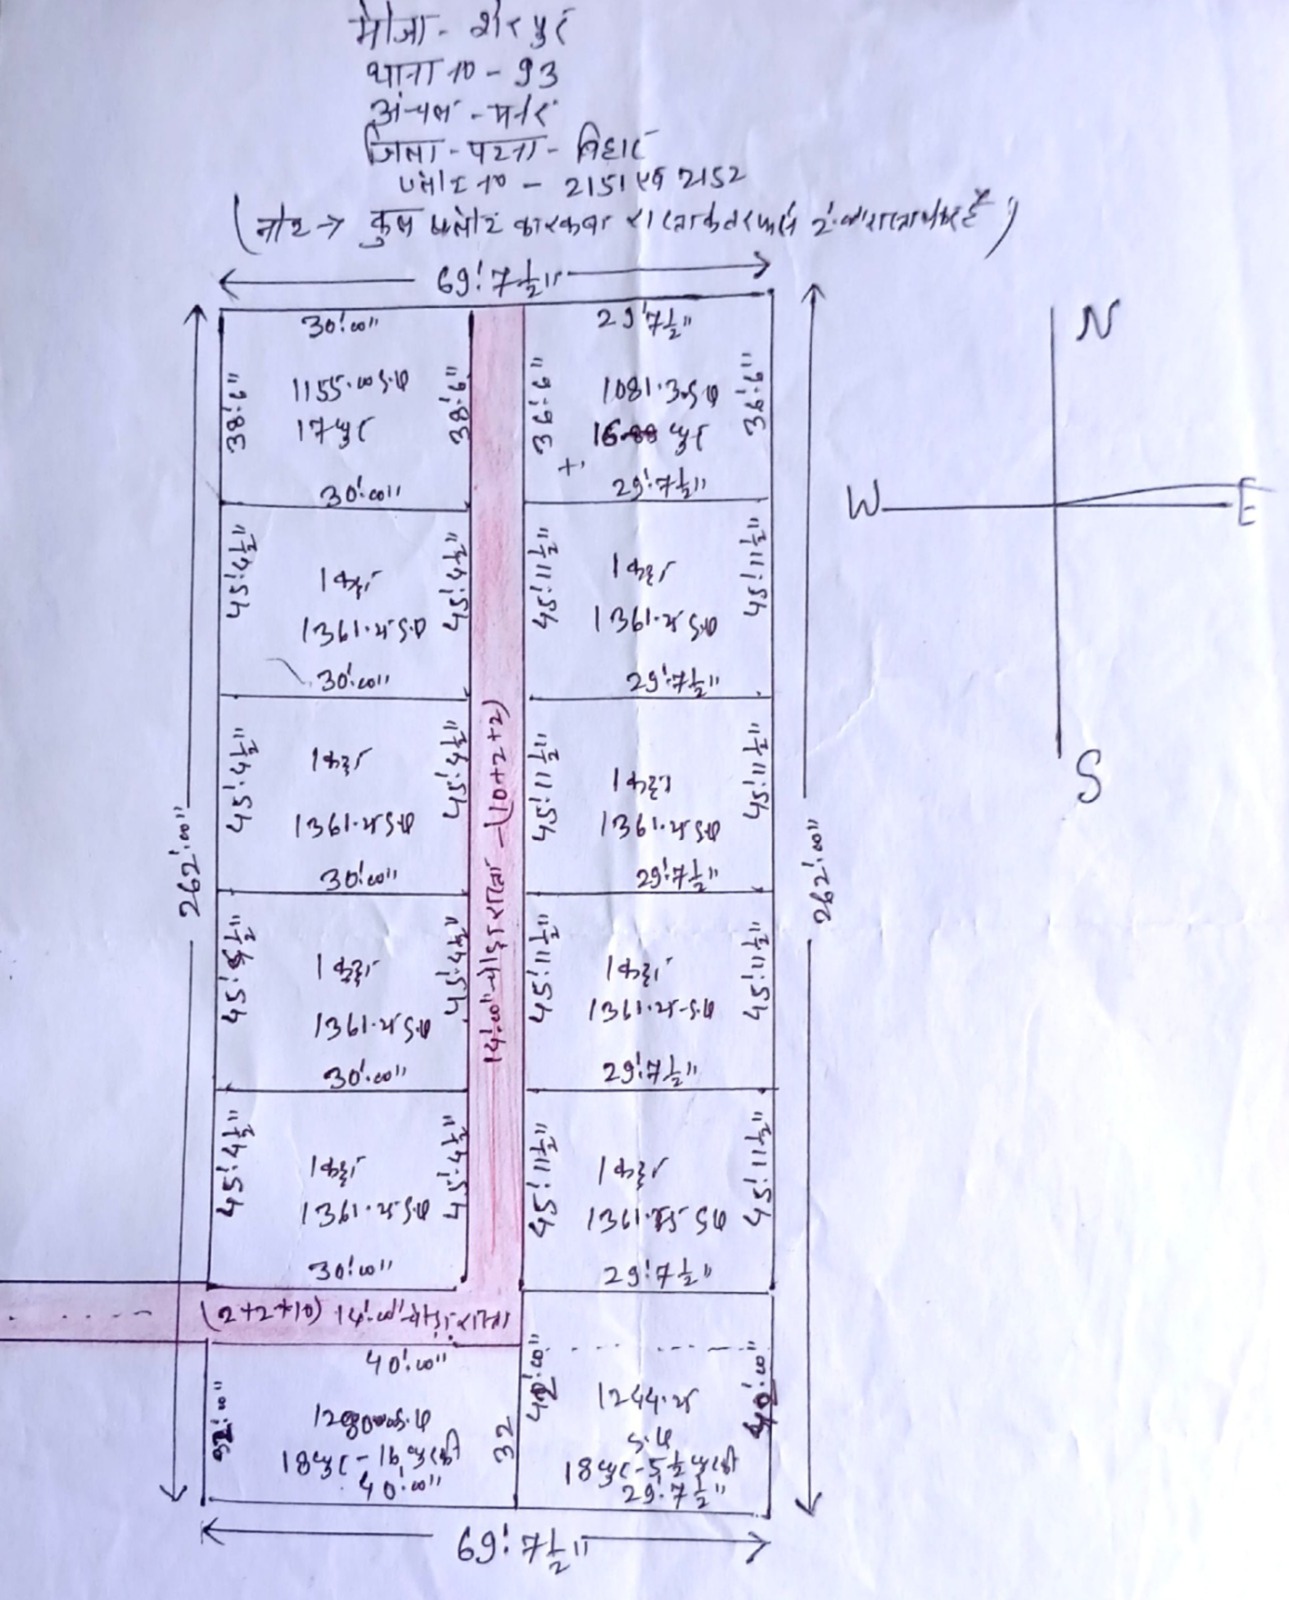 मौजा - शेरपुर
थाना नं० - 93
अंचल - मनेर
जिला - पटना - बिहार
प्लौट नं० - 2151 एवं 2152
नोट → कुल प्लौट का रकवा
69'.7½"
30'.00"
29'7½"
38'.6"
1155.00 S.फी
38'.6"
36'.6"
1081.3 S.फी
36'.6"
17 धुर
16 धुर
30'.00"
29'.7½"
N
W
E
S
45'.4½"
1 कट्ठा
45'.4½"
45'.11½"
1 कट्ठा
45'.11½"
1361.25 S.फी
1361.25 S.फी
30'.00"
29'.7½"
45'.4½"
1 कट्ठा
45'.4½"
45'.11½"
1 कट्ठा
45'.11½"
1361.25 S.फी
1361.25 S.फी
30'.00"
29'.7½"
262'.00"
14'.00" चौड़ा रास्ता - (10+2+2)
262'.00"
45'.4½"
1 कट्ठा
45'.4½"
45'.11½"
1 कट्ठा
45'.11½"
1361.25 S.फी
1361.25 S.फी
30'.00"
29'.7½"
45'.4½"
1 कट्ठा
45'.4½"
45'.11½"
1 कट्ठा
45'.11½"
1361.25 S.फी
1361.25 S.फी
30'.00"
29'.7½"
(2+2+10) 14'.00" चौड़ा रास्ता
40'.00"
32'.00"
1280.00 S.फी
32
42'.00"
1244.25
S.फी
42'.00"
18 धुर - 16 धुरकी
18 धुर - 5½ धुरकी
40'.00"
29'.7½"
69'.7½"